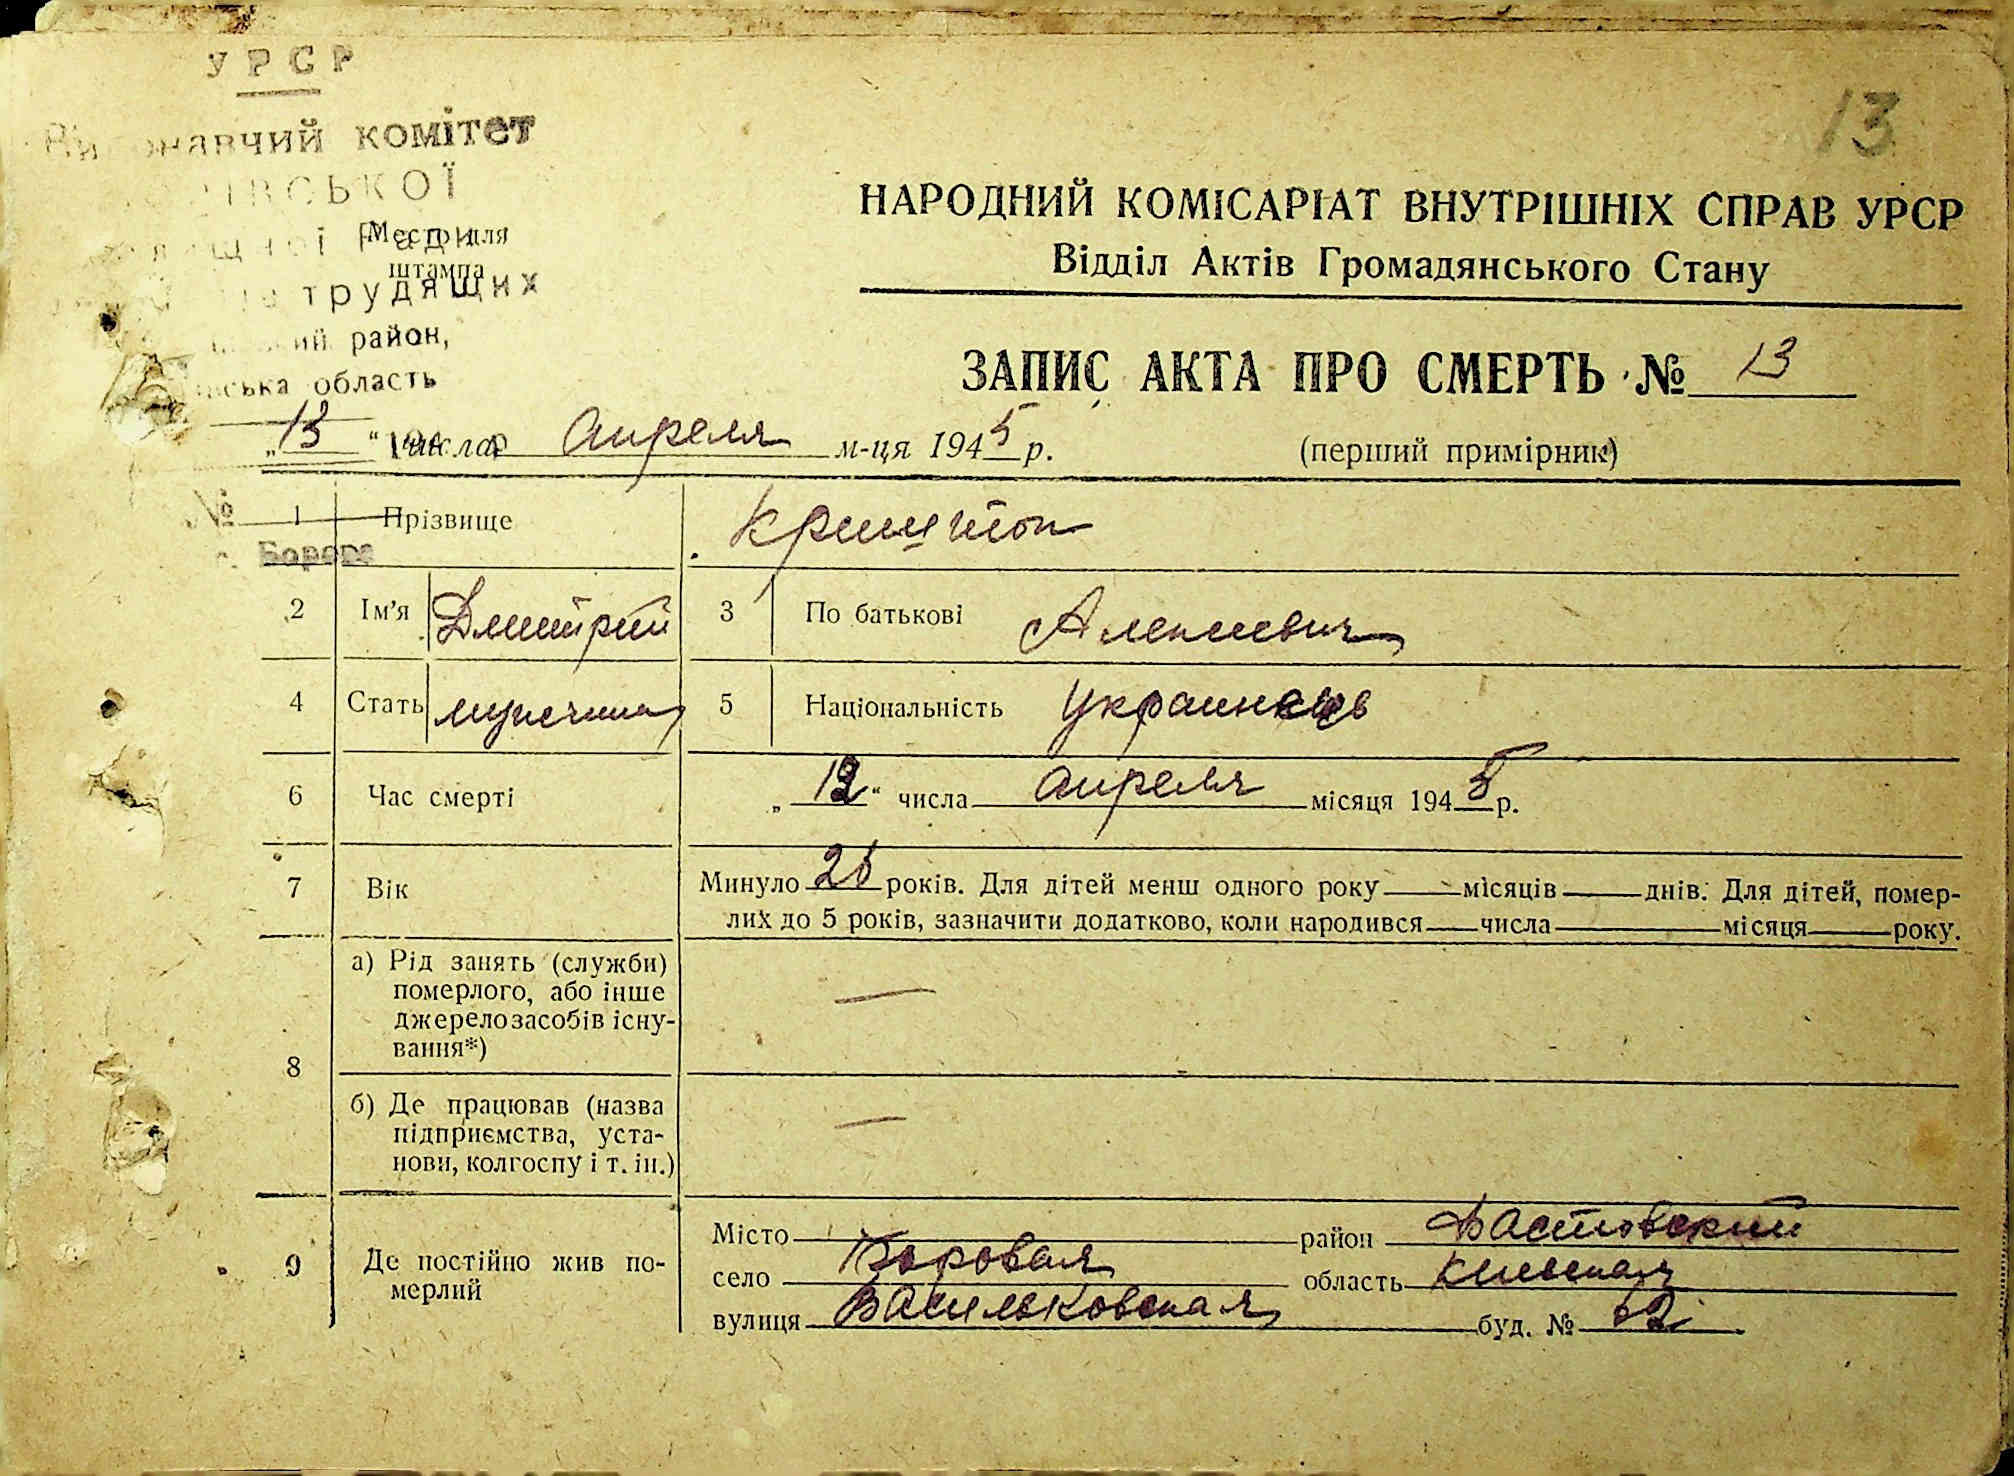 УРСР
комітет
Місце для
штампа
трудящих
район,
область
13
НАРОДНИЙ КОМІСАРІАТ ВНУТРІШНІХ СПРАВ УРСР
Відділ Актів Громадянського Стану
ЗАПИС АКТА ПРО СМЕРТЬ № 13
„13“ числа Апреля м-ця 1945 р.
(перший примірник)
№
1 Прізвище
2 Ім'я Дмитрий 3 По батькові Алексеевич
4 Стать мужчина 5 Національність Украинець
6 Час смерті „12“ числа Апреля місяця 1945 р.
7 Вік Минуло років. Для дітей менш одного року — місяців — днів. Для дітей, помер-
лих до 5 років, зазначити додатково, коли народився — числа — місяця — року.
8 а) Рід занять (служби)
померлого, або інше
джерело засобів існу-
вання*)
—
б) Де працював (назва
підприємства, уста-
нови, колгоспу і т. ін.)
—
9 Де постійно жив по-
мерлий
Місто район Фастовский
село Боровая область Киевская
вулиця Васильковская буд. № 62